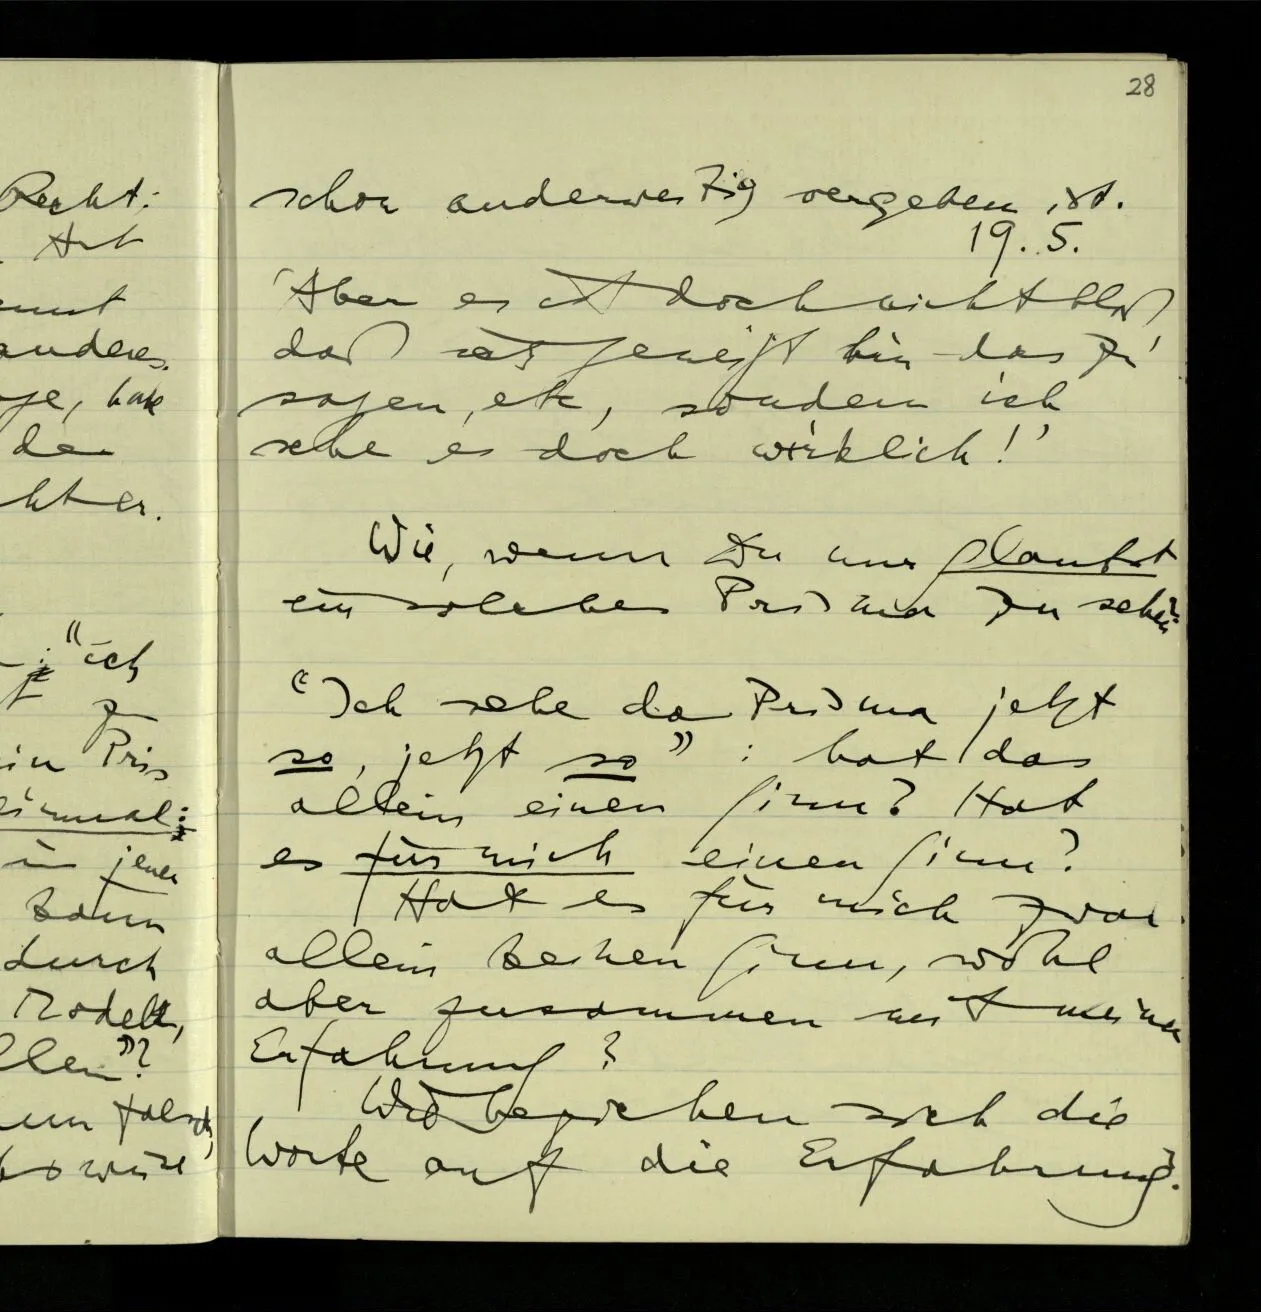 Recht:
Art
anderes.
der
"ich
zu
ein Pris
in jener
kann
durch
Modell,
falsch,
28
schon anderweitig vergeben ist.
19. 5.
'Aber es ist doch nicht bloß
daß ich geneigt bin das zu
sagen, etc, sondern ich
sehe es doch wirklich!'
Wie, wenn Du nur glaubst
ein solches Prisma zu sehen?
"Ich sehe das Prisma jetzt
so, jetzt so" : hat das
allein einen Sinn? Hat
es für mich einen Sinn?
Hat es für mich zwar
allein keinen Sinn, wohl
aber zusammen mit meiner
Erfahrung?
Wie beziehen sich die
Worte auf die Erfahrung?